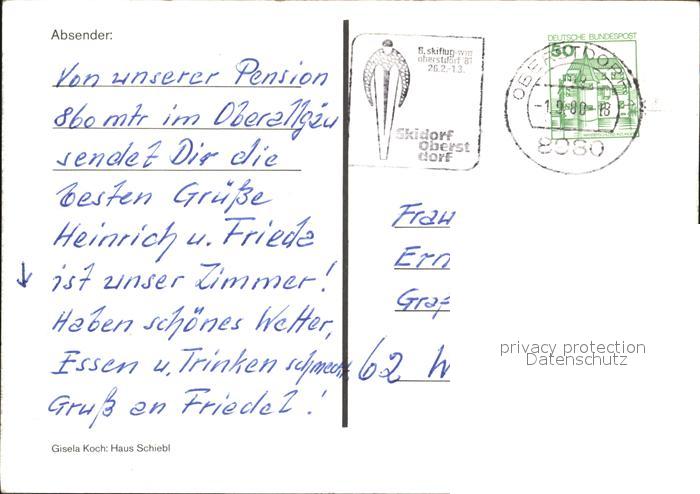 Absender:
Von unserer Pension
860 mtr im Oberallgäu
sendet Dir die
besten Grüße
Heinrich u. Frieda
ist unser Zimmer!
Haben schönes Wetter,
Essen u. Trinken schmeckt
Gruß an Friedel!
Gisela Koch: Haus Schiebl
6. skiflug-wm
oberstdorf '81
26.2.-1.3.
Skidorf
oberst
dorf
DEUTSCHE BUNDESPOST
50
OBERSTDORF
-1.9.80-18
8980
Frau
Ern
Graf
62 W
privacy protection
Datenschutz